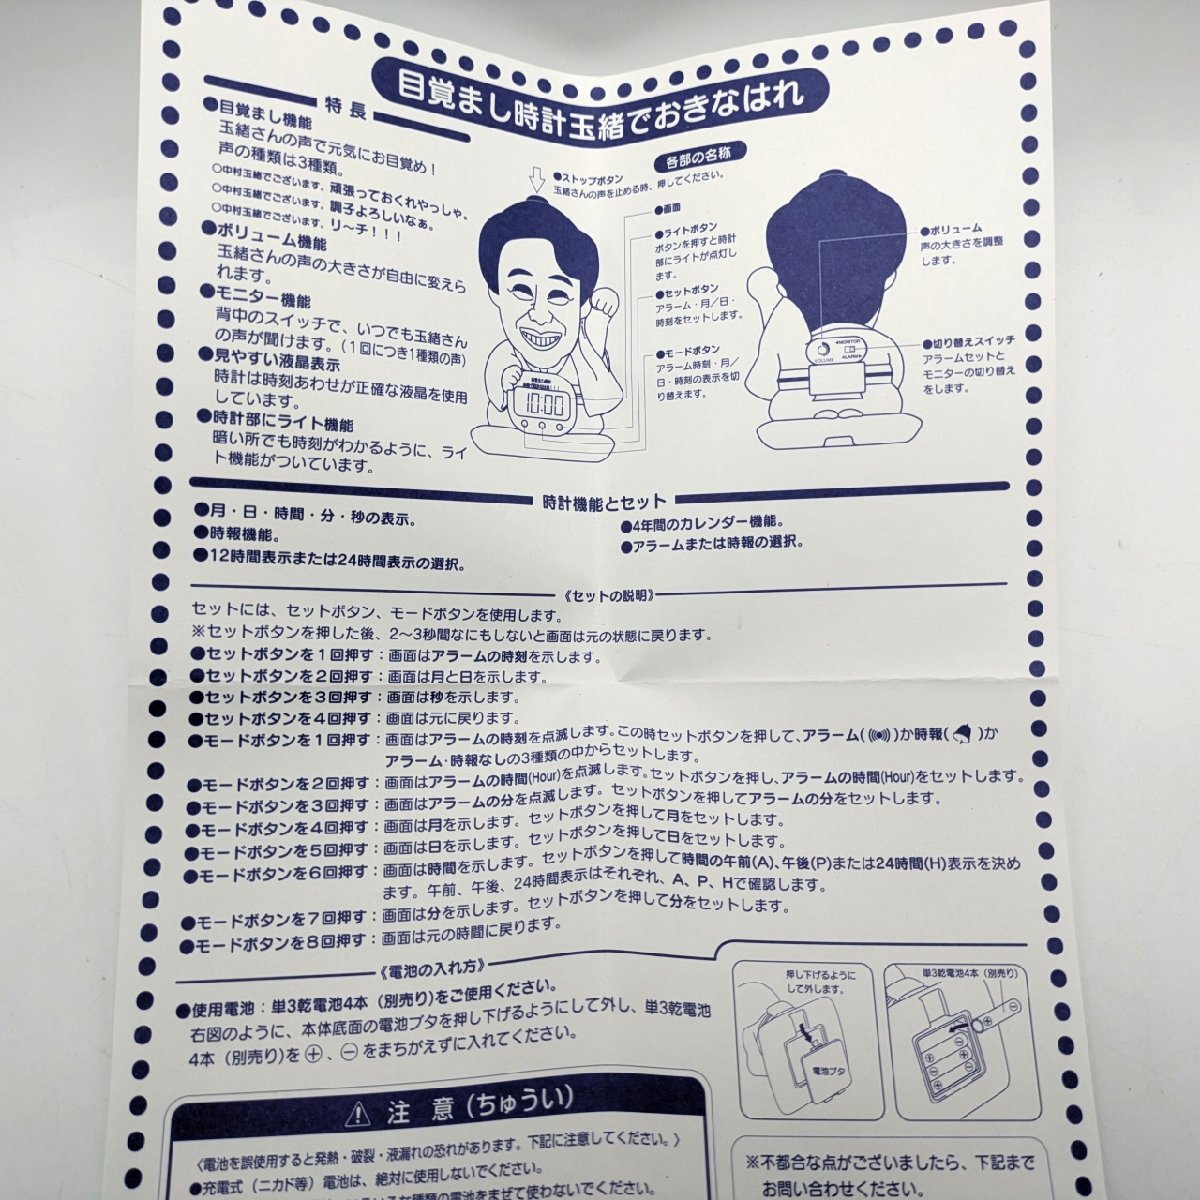 目覚まし時計玉緒でおきなはれ
特長
●目覚まし機能
玉緒さんの声で元気にお目覚め！
声の種類は3種類。
○中村玉緒でございます，頑張っておくれやっしゃ。
○中村玉緒でございます，調子よろしいなぁ。
○中村玉緒でございます，リ〜チ！！！
●ボリューム機能
玉緒さんの声の大きさが自由に変えら
れます。
●モニター機能
背中のスイッチで、いつでも玉緒さん
の声が聞けます。（1回につき1種類の声）
●見やすい液晶表示
時計は時刻あわせが正確な液晶を使用
しています。
●時計部にライト機能
暗い所でも時刻がわかるように、ライ
ト機能がついています。
各部の名称
●ストップボタン
玉緒さんの声を止める時、押してください。
●画面
●ライトボタン
ボタンを押すと時計
部にライトが点灯し
ます。
●セットボタン
アラーム・月／日・
時刻をセットします。
●モードボタン
アラーム時刻・月／
日・時刻の表示を切
り替えます。
10:00
●ボリューム
声の大きさを調整
します．
●切り替えスイッチ
アラームセットと
モニターの切り替え
をします。
MONITOR
VOLUME
ALARM
時計機能とセット
●月・日・時間・分・秒の表示。
●時報機能。
●12時間表示または24時間表示の選択。
●4年間のカレンダー機能。
●アラームまたは時報の選択。
《セットの説明》
セットには、セットボタン、モードボタンを使用します。
※セットボタンを押した後、2〜3秒間なにもしないと画面は元の状態に戻ります。
●セットボタンを1回押す：画面はアラームの時刻を示します。
●セットボタンを2回押す：画面は月と日を示します。
●セットボタンを3回押す：画面は秒を示します。
●セットボタンを4回押す：画面は元に戻ります。
●モードボタンを1回押す：画面はアラームの時刻を点滅します。この時セットボタンを押して、アラーム( )か時報( )か
アラーム・時報なしの3種類の中からセットします。
●モードボタンを2回押す：画面はアラームの時間(Hour)を点滅します。セットボタンを押し、アラームの時間(Hour)をセットします。
●モードボタンを3回押す：画面はアラームの分を点滅します。セットボタンを押してアラームの分をセットします。
●モードボタンを4回押す：画面は月を示します。セットボタンを押して月をセットします。
●モードボタンを5回押す：画面は日を示します。セットボタンを押して日をセットします。
●モードボタンを6回押す：画面は時間を示します。セットボタンを押して時間の午前(A)、午後(P)または24時間(H)表示を決め
ます。午前、午後、24時間表示はそれぞれ、A、P、Hで確認します。
●モードボタンを7回押す：画面は分を示します。セットボタンを押して分をセットします。
●モードボタンを8回押す：画面は元の時間に戻ります。
《電池の入れ方》
●使用電池：単3乾電池4本（別売り)をご使用ください。
右図のように、本体底面の電池ブタを押し下げるようにして外し、単3乾電池
4本（別売り)を⊕、⊖をまちがえずに入れてください。
押し下げるように
して外します。
電池ブタ
単3乾電池4本（別売り）
⚠ 注意(ちゅうい)
〈電池を誤使用すると発熱・破裂・液漏れの恐れがあります。下記に注意してください。〉
●充電式（ニカド等）電池は、絶対に使用しないでください。
な種類の電池をまぜて使わないでください。
※不都合な点がございましたら、下記まで
お問い合わせください。